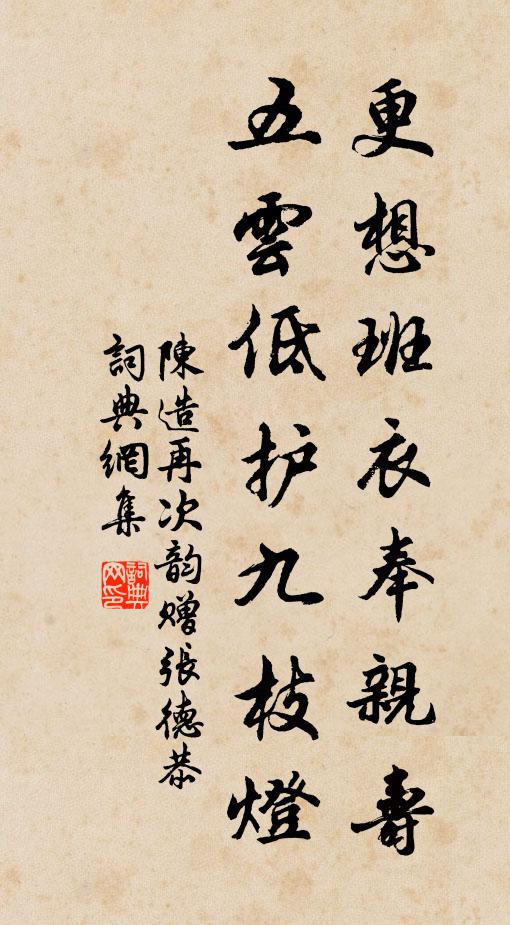 更想班衣奉親壽
五雲低护九枝燈
陳造再次韵贈張德恭
詞典網集
詞典网印